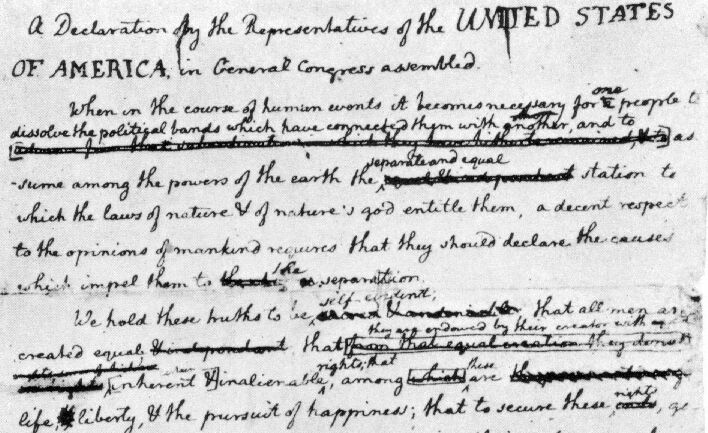 A Declaration by the Representatives of the UNITED STATES
OF AMERICA, in General Congress assembled.
When in the course of human events it becomes necessary for one people to
dissolve the political bands which have connected them with another, and to
as-
separate and equal
-sume among the powers of the earth the equal & independant station to
which the laws of nature & of nature's god entitle them, a decent respect
to the opinions of mankind requires that they should declare the causes
which impel them to the separation.
self-evident;
We hold these truths to be sacred & undeniable that all men are
they are endowed by their creator with
created equal & independant that from that equal creation they derive
rights; that these
inherent & inalienable, among which are
rights
life, liberty, & the pursuit of happiness; that to secure these ends, go-